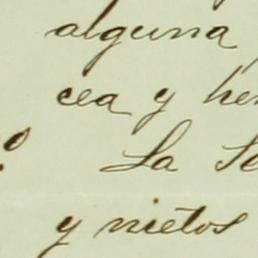 alguna
cea y her
La Se
y nietos